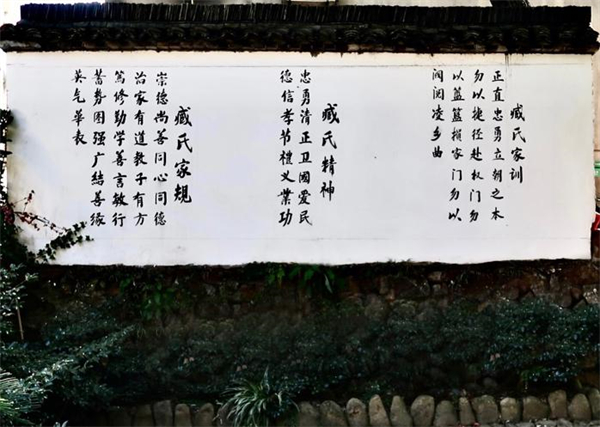 臧氏家训
正直忠勇立朝之本
勿以捷径赴权门勿
以簠簋损家门勿以
阀阅凌乡曲
臧氏精神
忠勇清正卫国爱民
德信孝节礼义业功
臧氏家规
崇德尚善同心同德
治家有道教子有方
笃修勤学善言敏行
蓄势图强广结善缘
英气华表